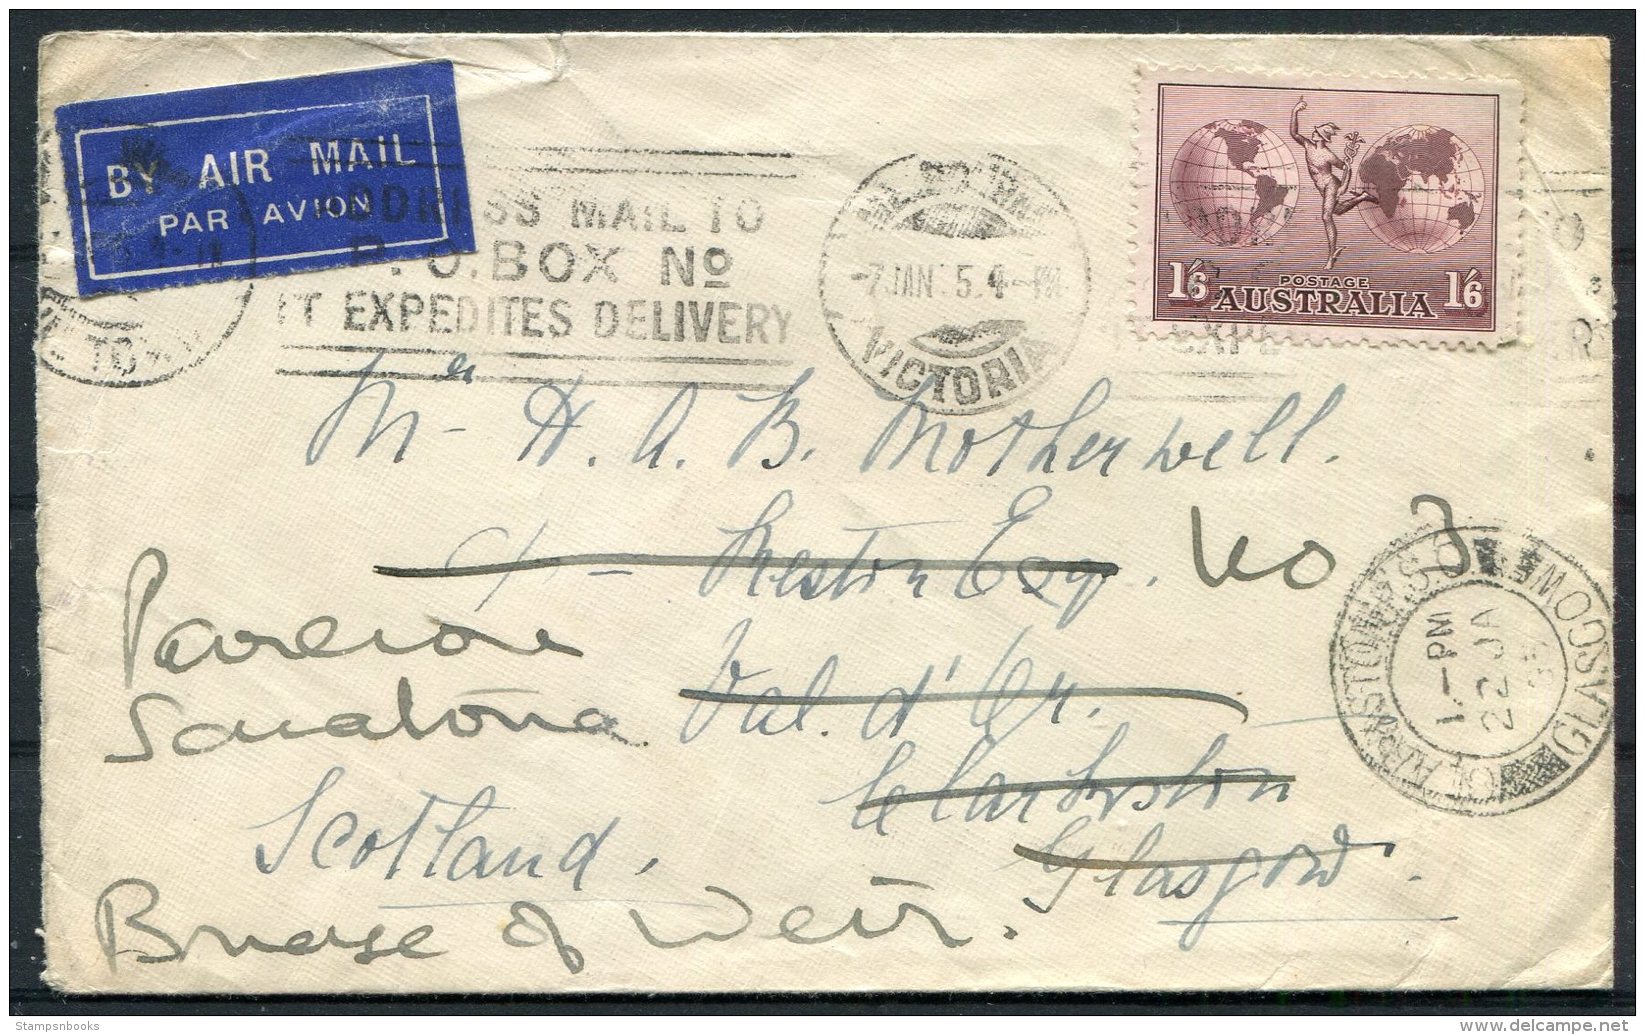 BY AIR MAIL
PAR AVION
ADDRESS MAIL TO
P.O. BOX Nº
IT EXPEDITES DELIVERY
MELBOURNE
-7 JAN 5. 4-PM
VICTORIA
POSTAGE
1/6 AUSTRALIA 1/6
Mr H. A. B. Motherwell.
c/- Preston Esq. No 3
Pavilion
Val. d'Or.
Sanatoria
Clarkston
Scotland.
Glasgow.
Bridge of Weir.
CLARKSTON R.S.O.
GLASGOW
1 - PM
22 JA
35
Stampsnbooks
delcampe.net